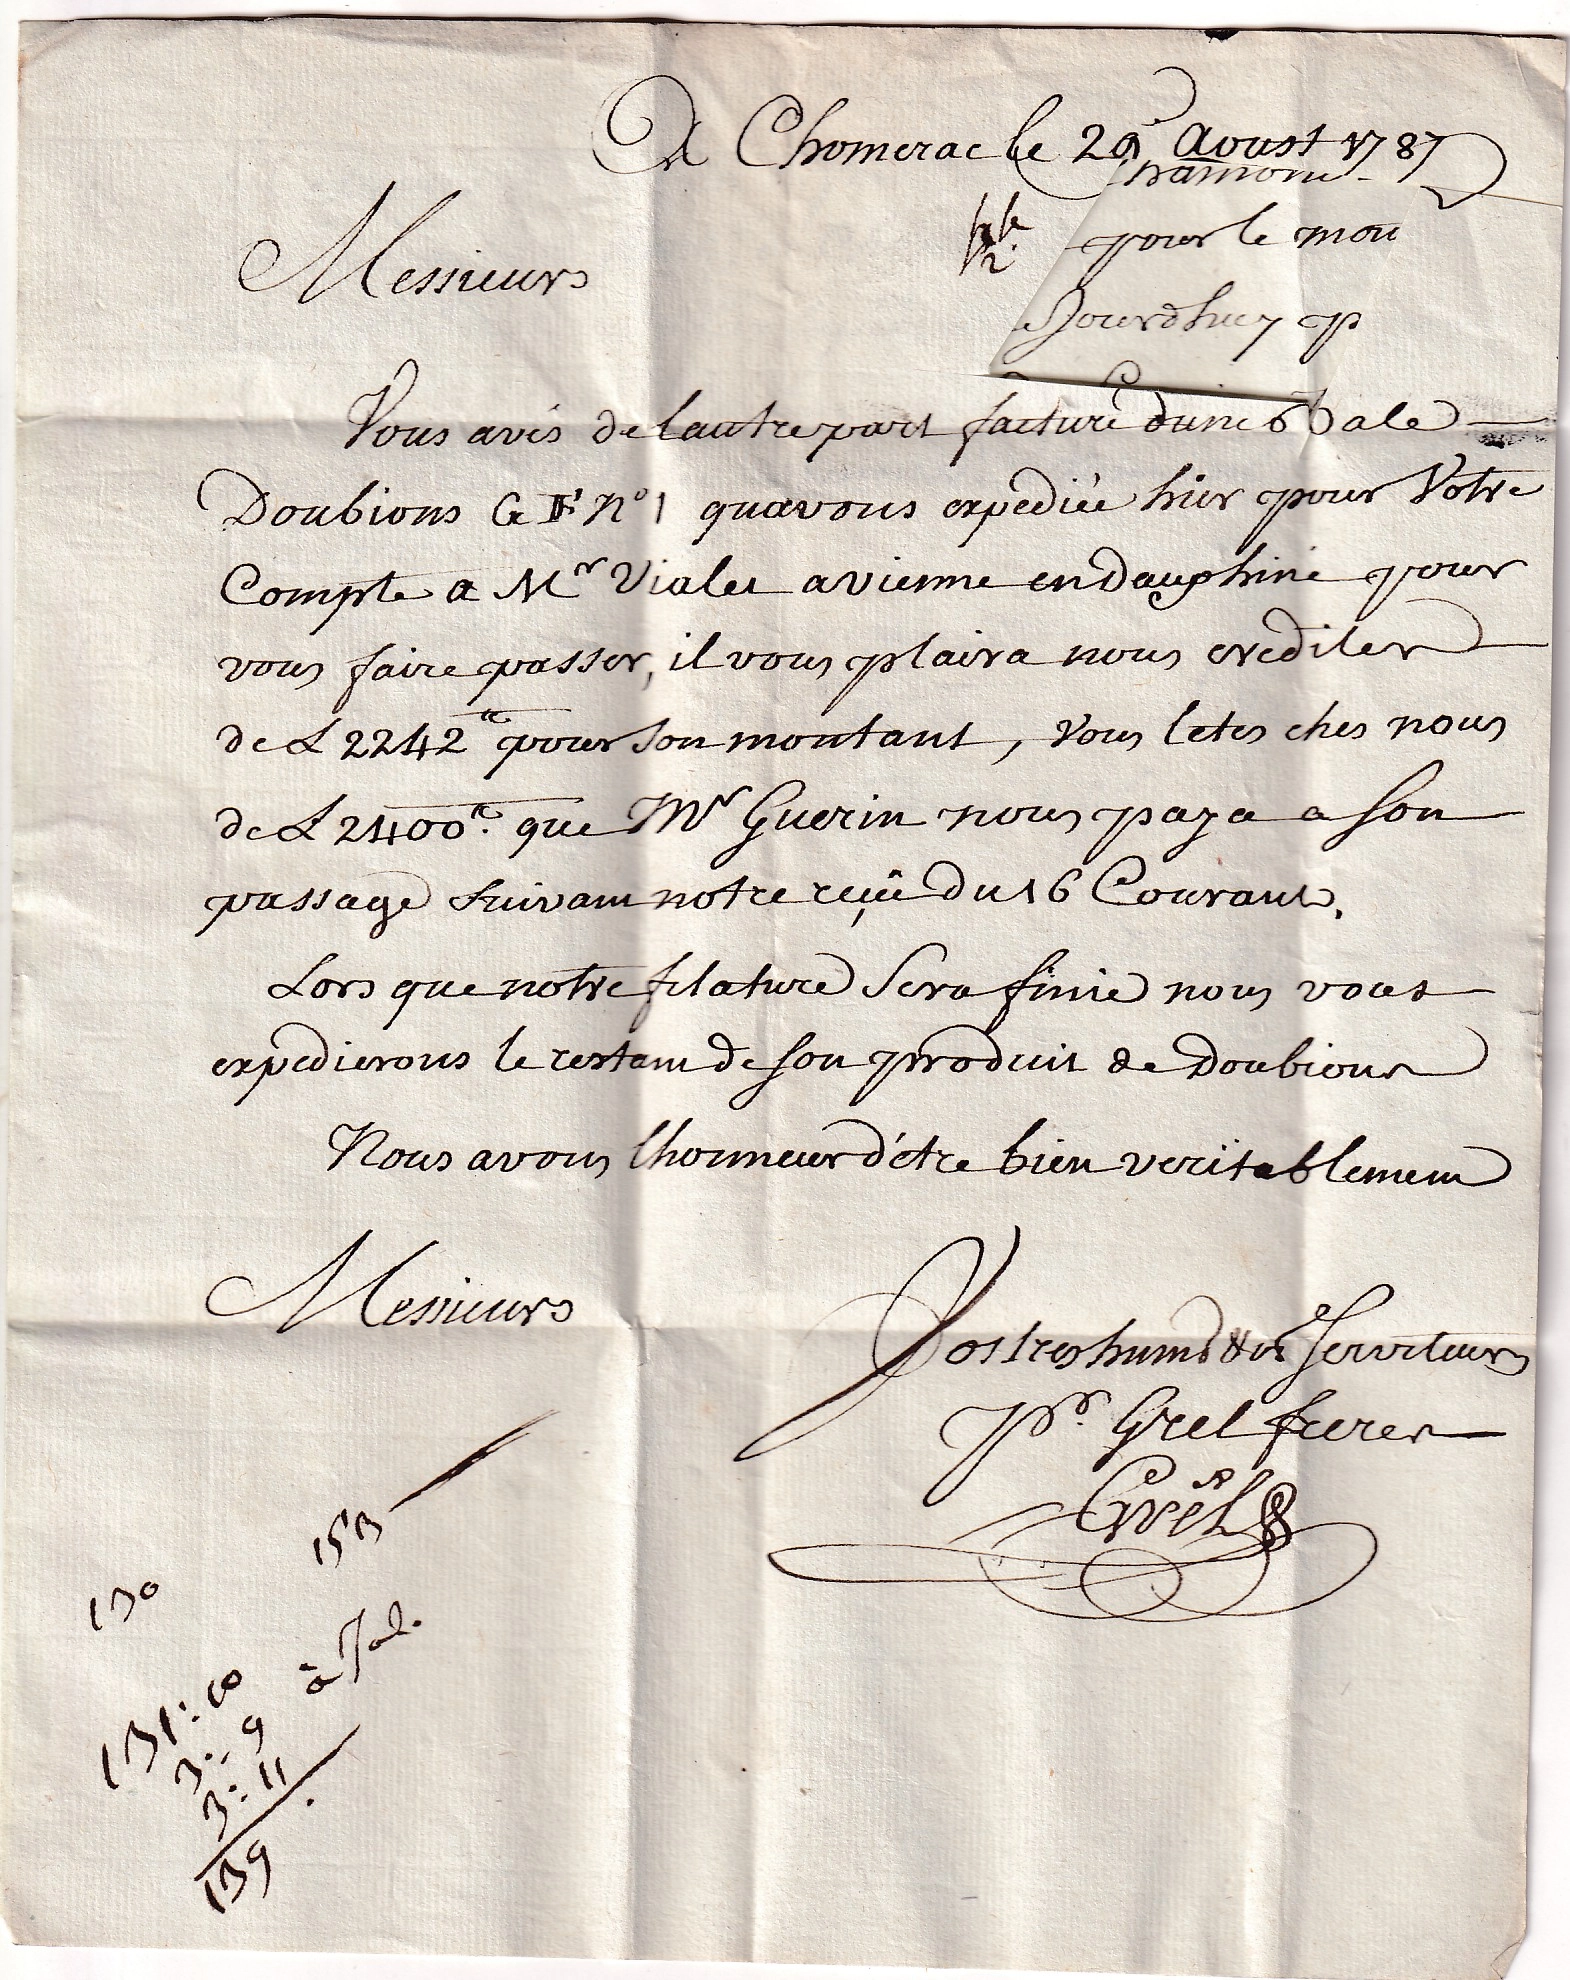 A Chomerac le 29 Aoust 1787
pour le mon
Jourdhuy p
Messieurs
Vous avés de lautre part facture dune Bale
Doubions G F N° 1 quavons expediée hier pour Votre
Compte a Mr Vialet a vienne en Dauphiné pour
vous faire passer, il vous plaira nous crediter
de L 2242 pour son montant, Vous letes ches nous
de L 2400. que Mr Guerin nous paya a son
passage suivant notre reçû du 16 Courant.
Lors que notre filature sera finie nous vous
expedierons le restant de son produit de Doubions
Nous avons lhonneur d'étre bien veritablement
Messieurs
Vos tres humb & ob Serviteurs
Pr. Grel freres
Grel
153
130
131:10
3:9
3:11
139